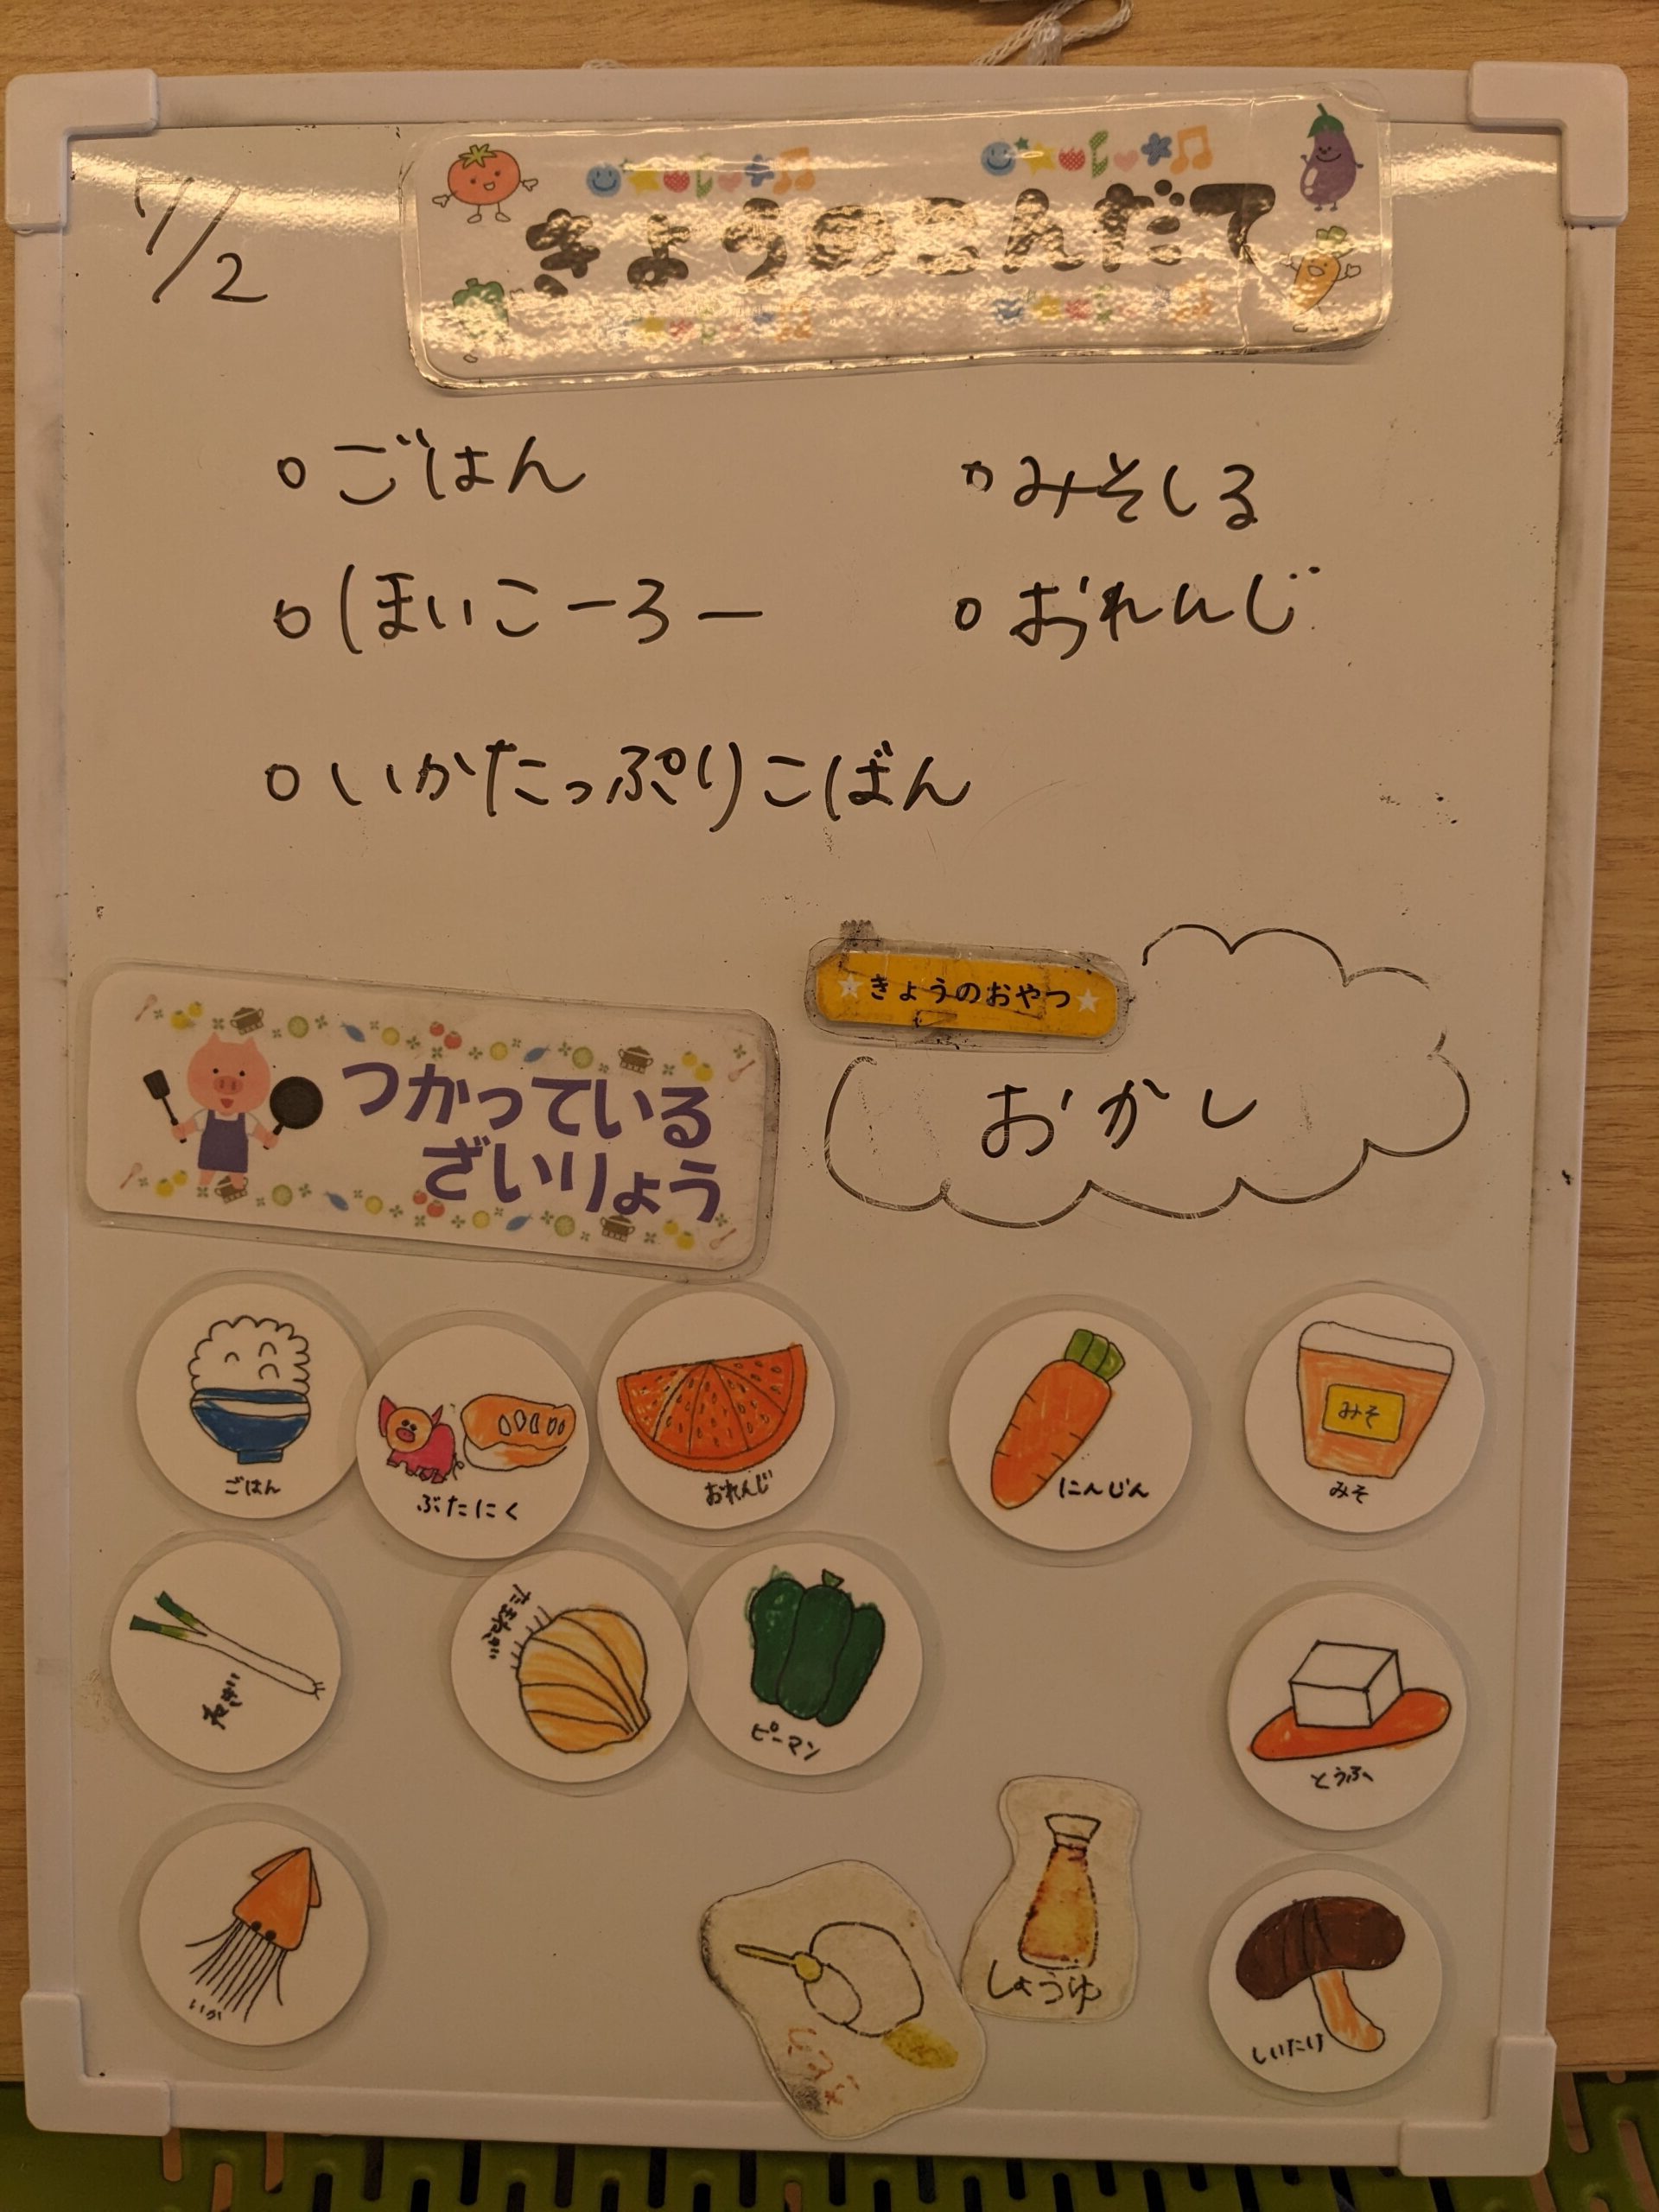 7/2
きょうのこんだて
○ごはん
○みそしる
○ほいこーろー
○おれんじ
○いかたっぷりこばん
きょうのおやつ
おかし
つかっている
ざいりょう
ごはん
ぶたにく
おれんじ
にんじん
みそ
みそ
ねぎ
たまねぎ
ピーマン
とうふ
いか
しょうゆ
しいたけ